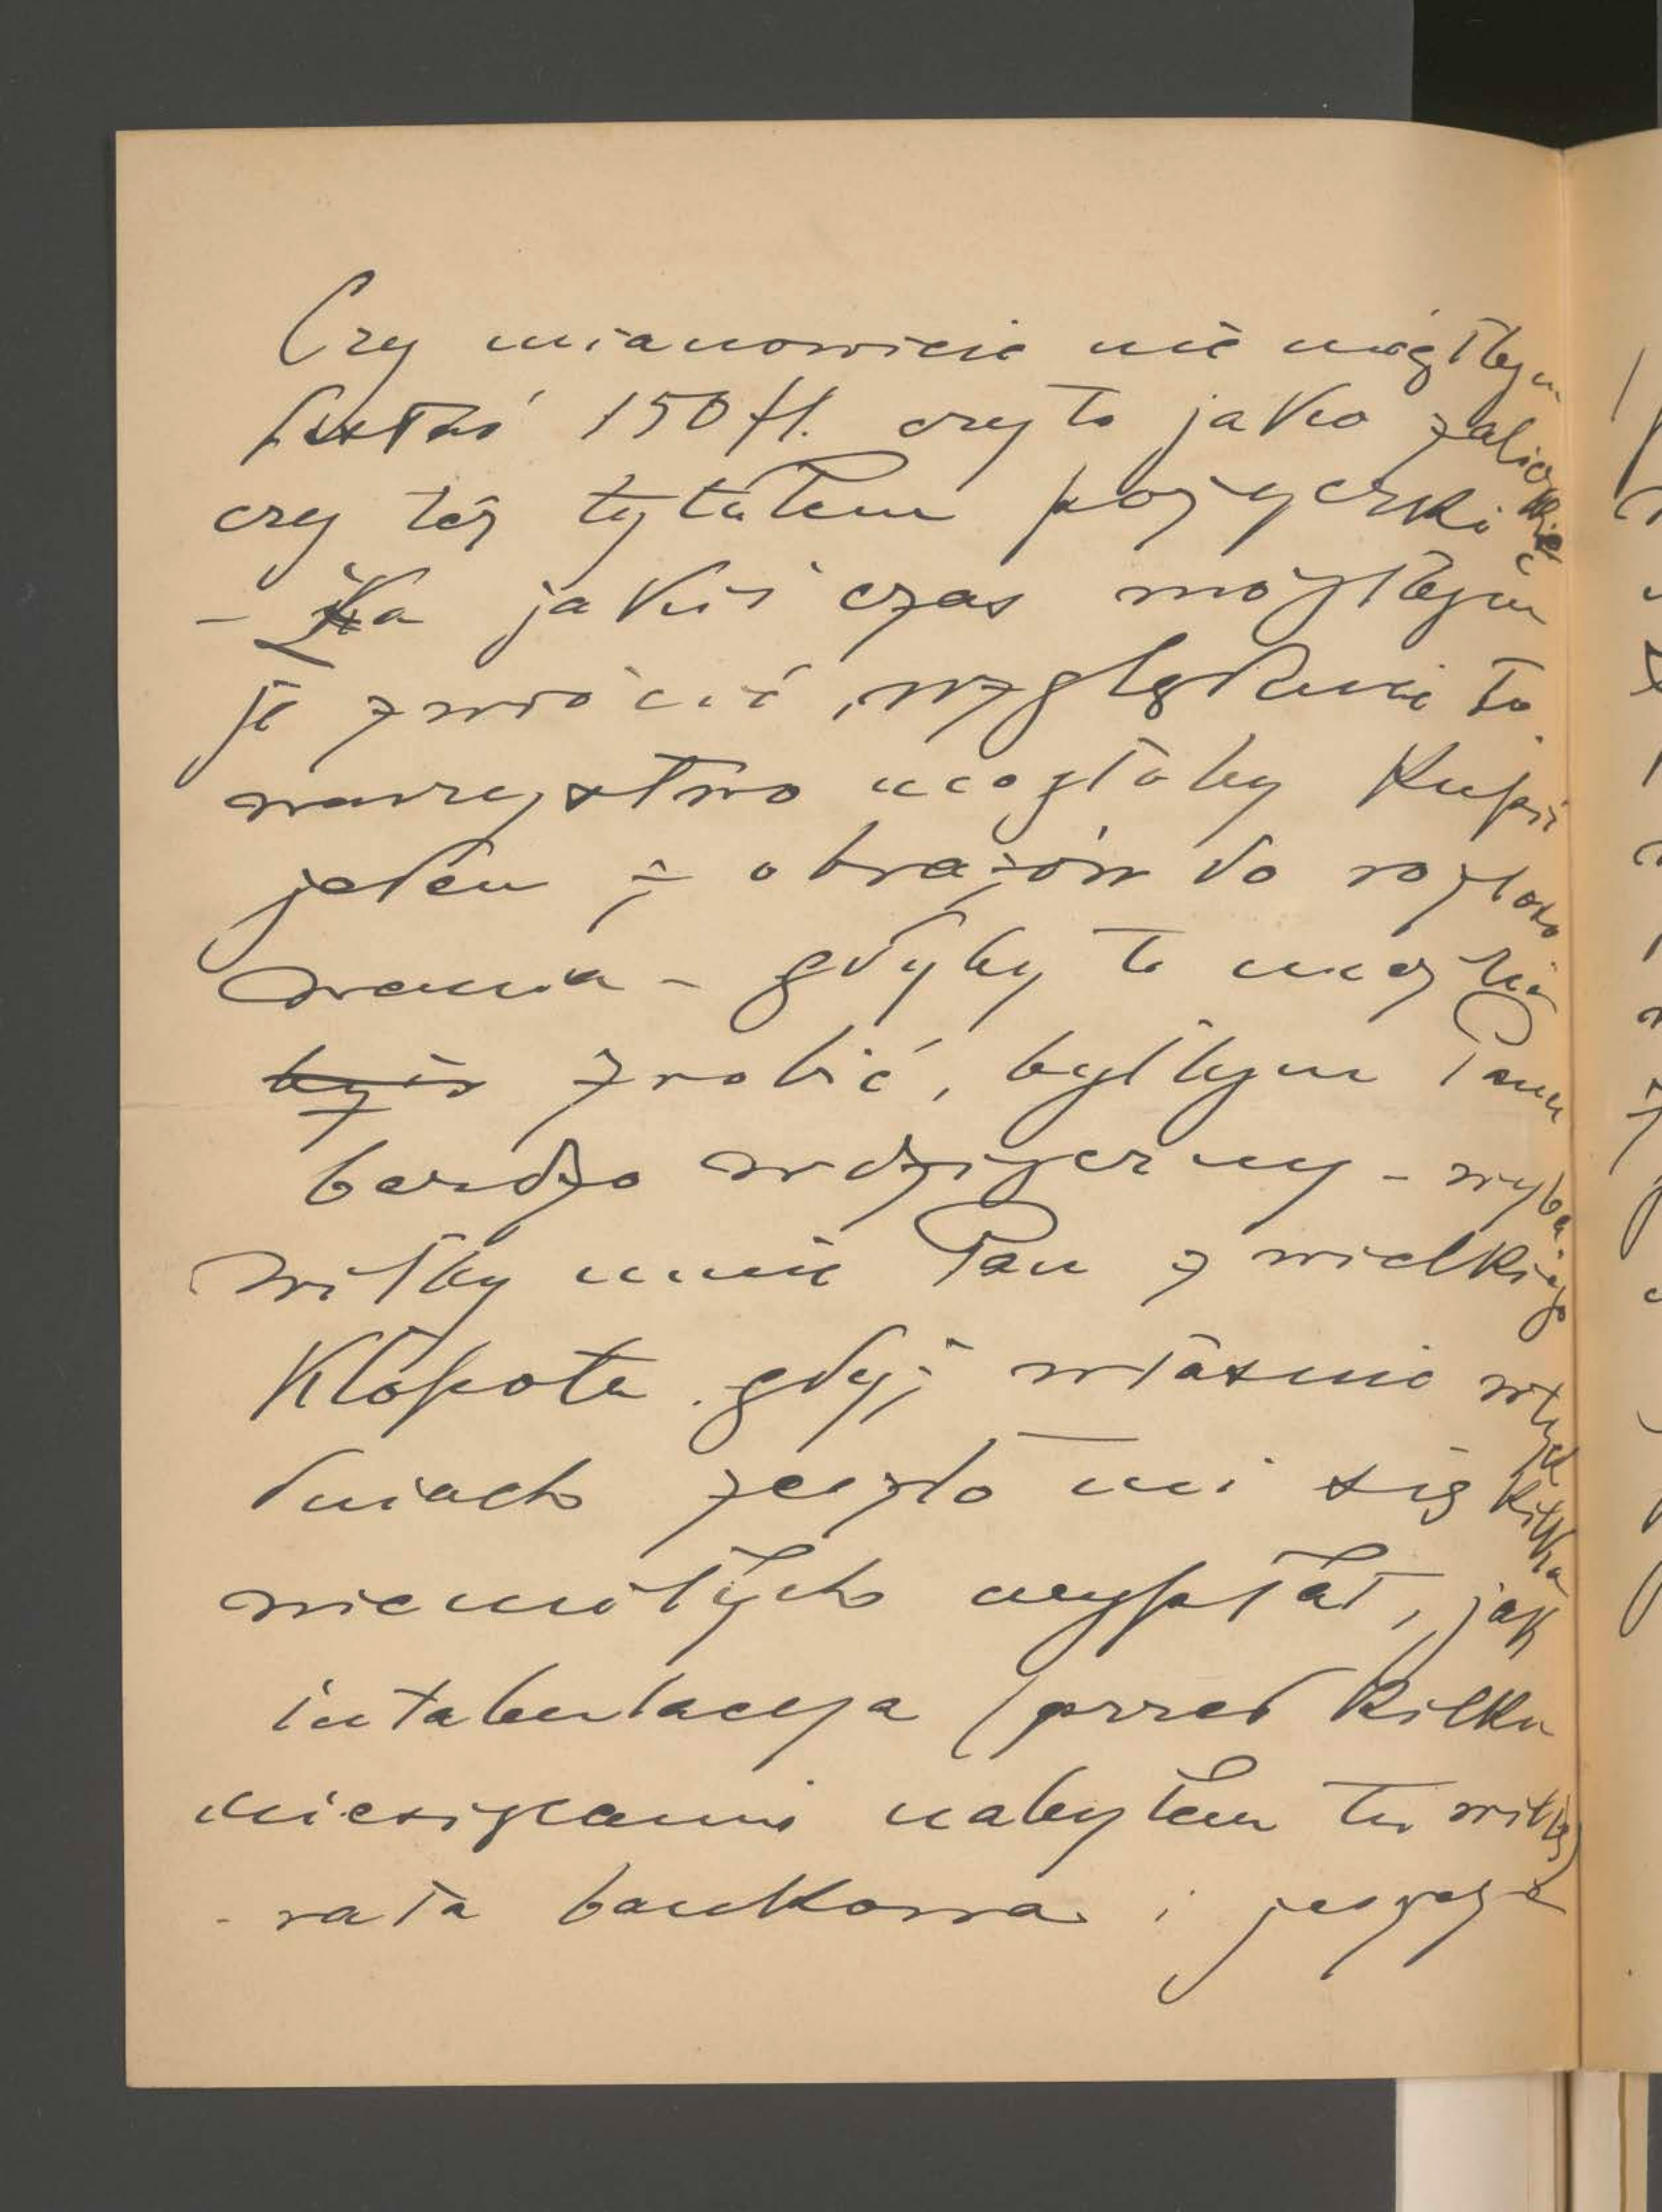 Czy mianowicie nie mógłbym
dostać 150 fl. czy to jako zaliczkę
czy też tytułem pożyczki
- Za jakiś czas mógłbym
je zwrócić, względnie to-
warzystwo mogłoby kupić
jeden z obrazów do rozloso
wania - gdyby to mogli
zrobić, byłbym Panu
bardzo wdzięczny - wyba-
wiłby mnie Pan z wielkiego
kłopotu gdyż właśnie w tych
dniach zeszło mi się kilka
niemiłych wypłat, jak
intabulacya (przed kilku
miesiącami nabyłem tu willę)
- rata bankowa i jeszcze